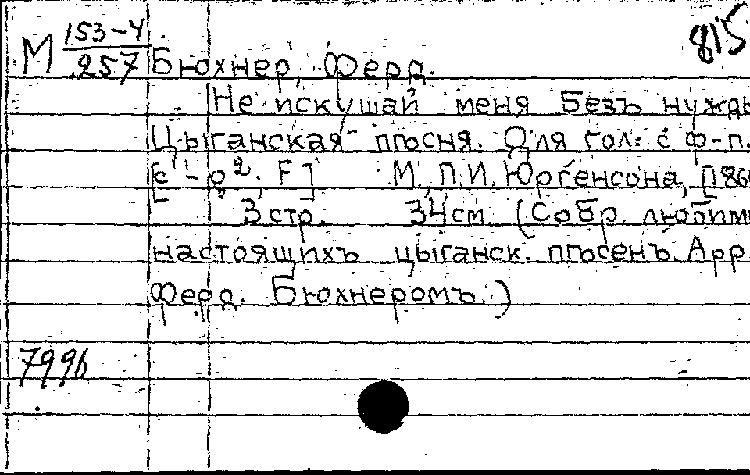 815
М 153-4/257 Бюхнер, Ферд.
Не искушай меня безъ нужд
Цыганская пѣсня. Для гол. с ф-п.
[c¹-g², F] М., П.И. Юргенсона, [186
3 стр. 34 см (Собр. любим
настоящихъ цыганск. пѣсенъ. Арр.
Ферд. Бюхнеромъ.)
7996